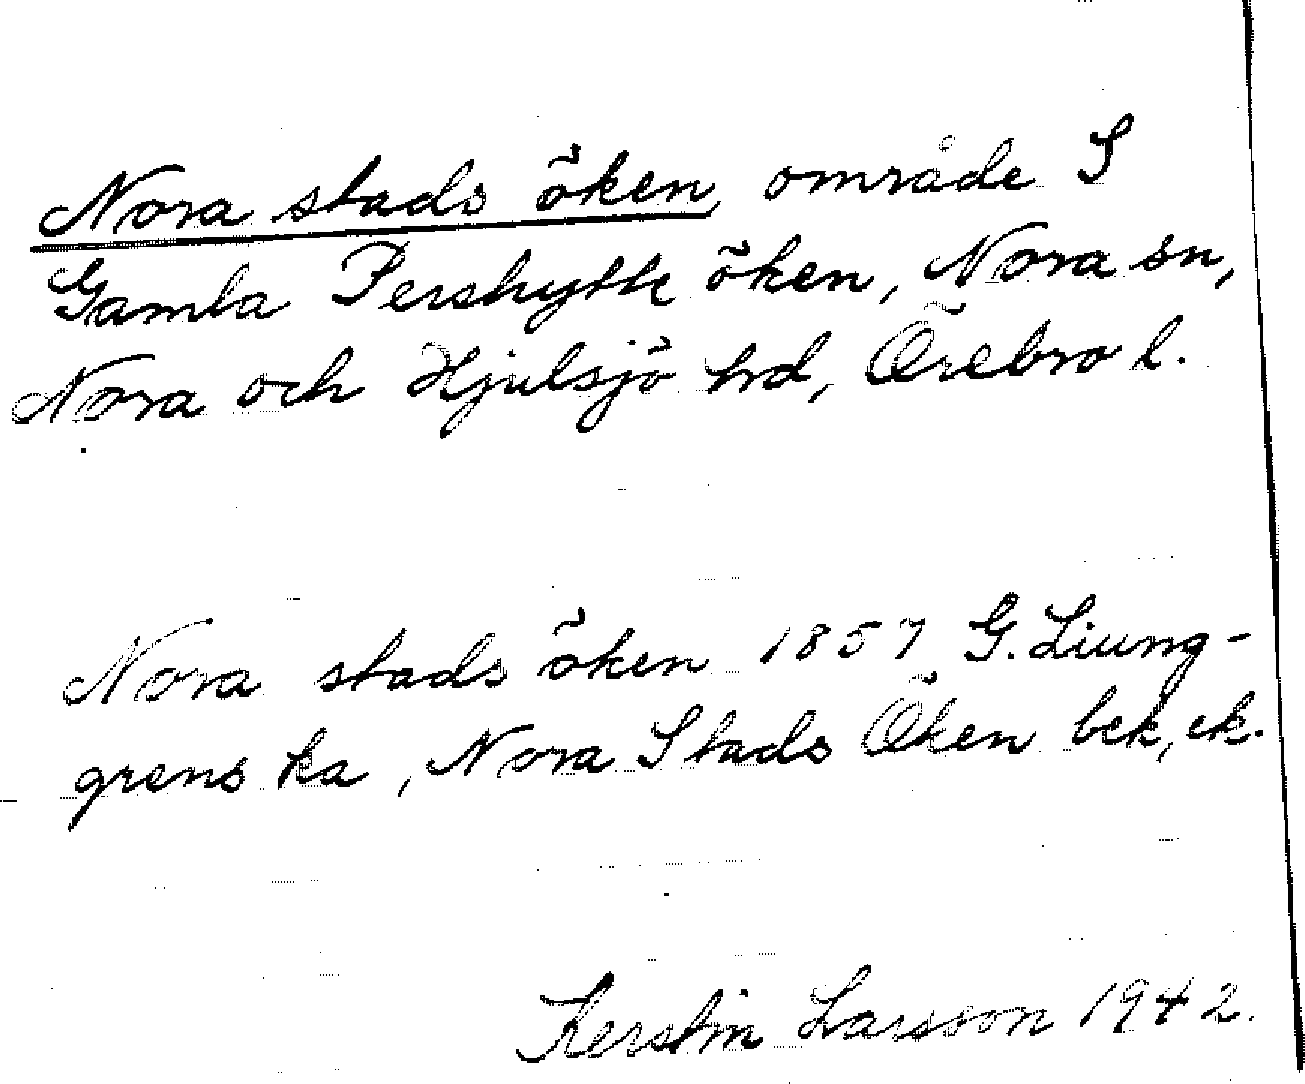 Nora stads öken, område S
Gamla Pershytte öken, Nora sn,
Nora och Hjulsjö hd, Örebro l.
Nora stads öken 1857 G. Liung-
grens ka, Nora Stads Öken bek, ek.
Kerstin Larsson 1942.